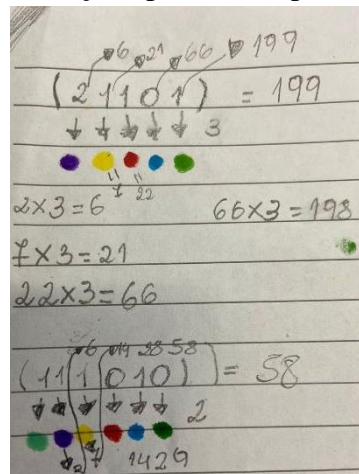 6 21 66 199
(2 1 1 0 1) = 199
3
7 22
2×3=6 66×3=198
7×3=21
22×3=66
6 14 28 58
(1 1 1 0 1 0) = 58
2
3 7 14 29